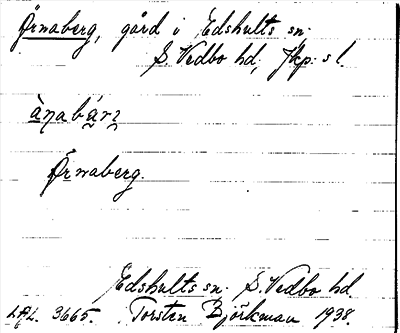 Örnaberg, gård i Edshults sn.
S. Vedbo hd, Jkp:s l.
Örnaberg.
Edshults sn. S. Vedbo hd.
LAL. 3665. Torsten Björkman 1938